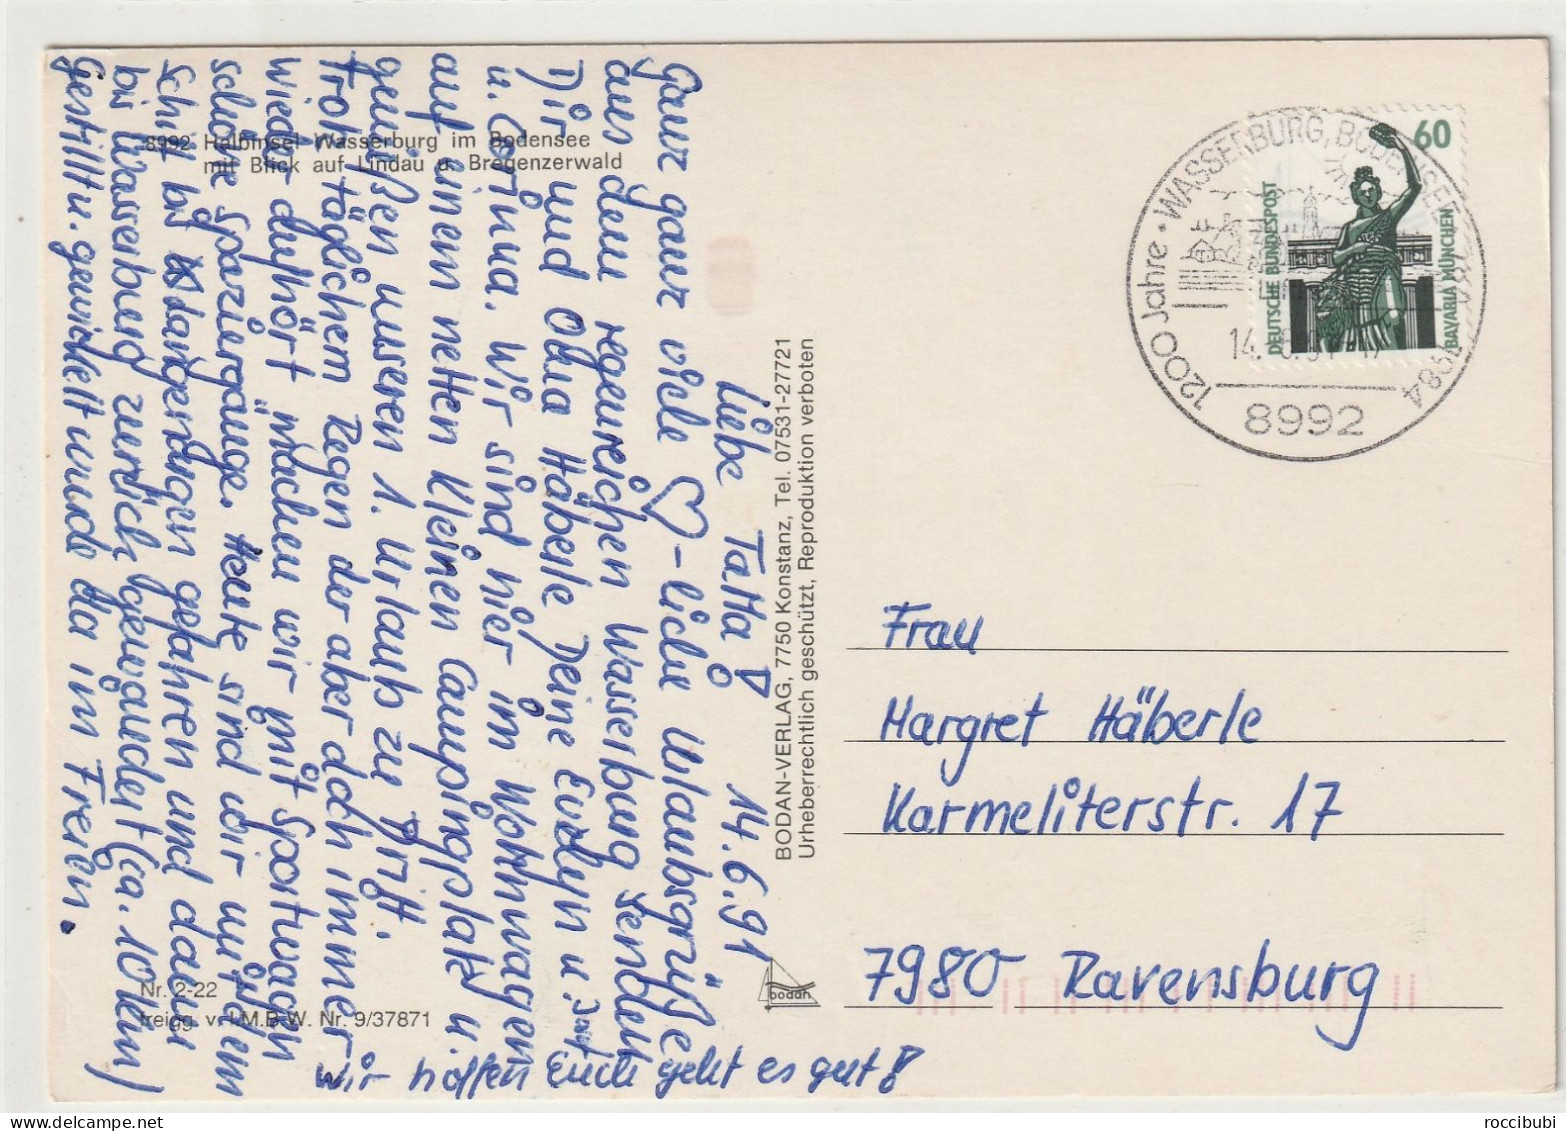 8992 Halbinsel Wasserburg im Bodensee
mit Blick auf Lindau u. Bregenzerwald
14.6.91
Liebe TaMa!
Ganz ganz viele ♡-liche Urlaubsgrüße
aus dem regenreichen Wasserburg senden
Dir und Oma Häberle Deine Evelyn u.
u. Corinna. Wir sind hier im Wohnwagen
auf einem netten kleinen Campingplatz u.
genießen unseren 1. Urlaub zu Dritt.
Trotz täglichem Regen der aber doch immer
wieder aufhört machen wir mit Sportwagen
schöne Spaziergänge. Heute sind wir mit dem
Schiff bis Langenargen gefahren und dann
bis Wasserburg zurück gewandert (ca. 10 km)
Gestillt u. gewickelt wurde da im Freien.
Wir hoffen Euch geht es gut!
Nr. 2-22
freigg. v. I.M.B-W. Nr. 9/37871
BODAN-VERLAG, 7750 Konstanz, Tel. 07531-27721
Urheberrechtlich geschützt, Reproduktion verboten
bodan
1200 Jahre · WASSERBURG, BODENSEE 784 1984
14. 6.91
8992
60
DEUTSCHE BUNDESPOST
BAVARIA MÜNCHEN
Frau
Margret Häberle
Karmeliterstr. 17
7980 Ravensburg
roccibubi